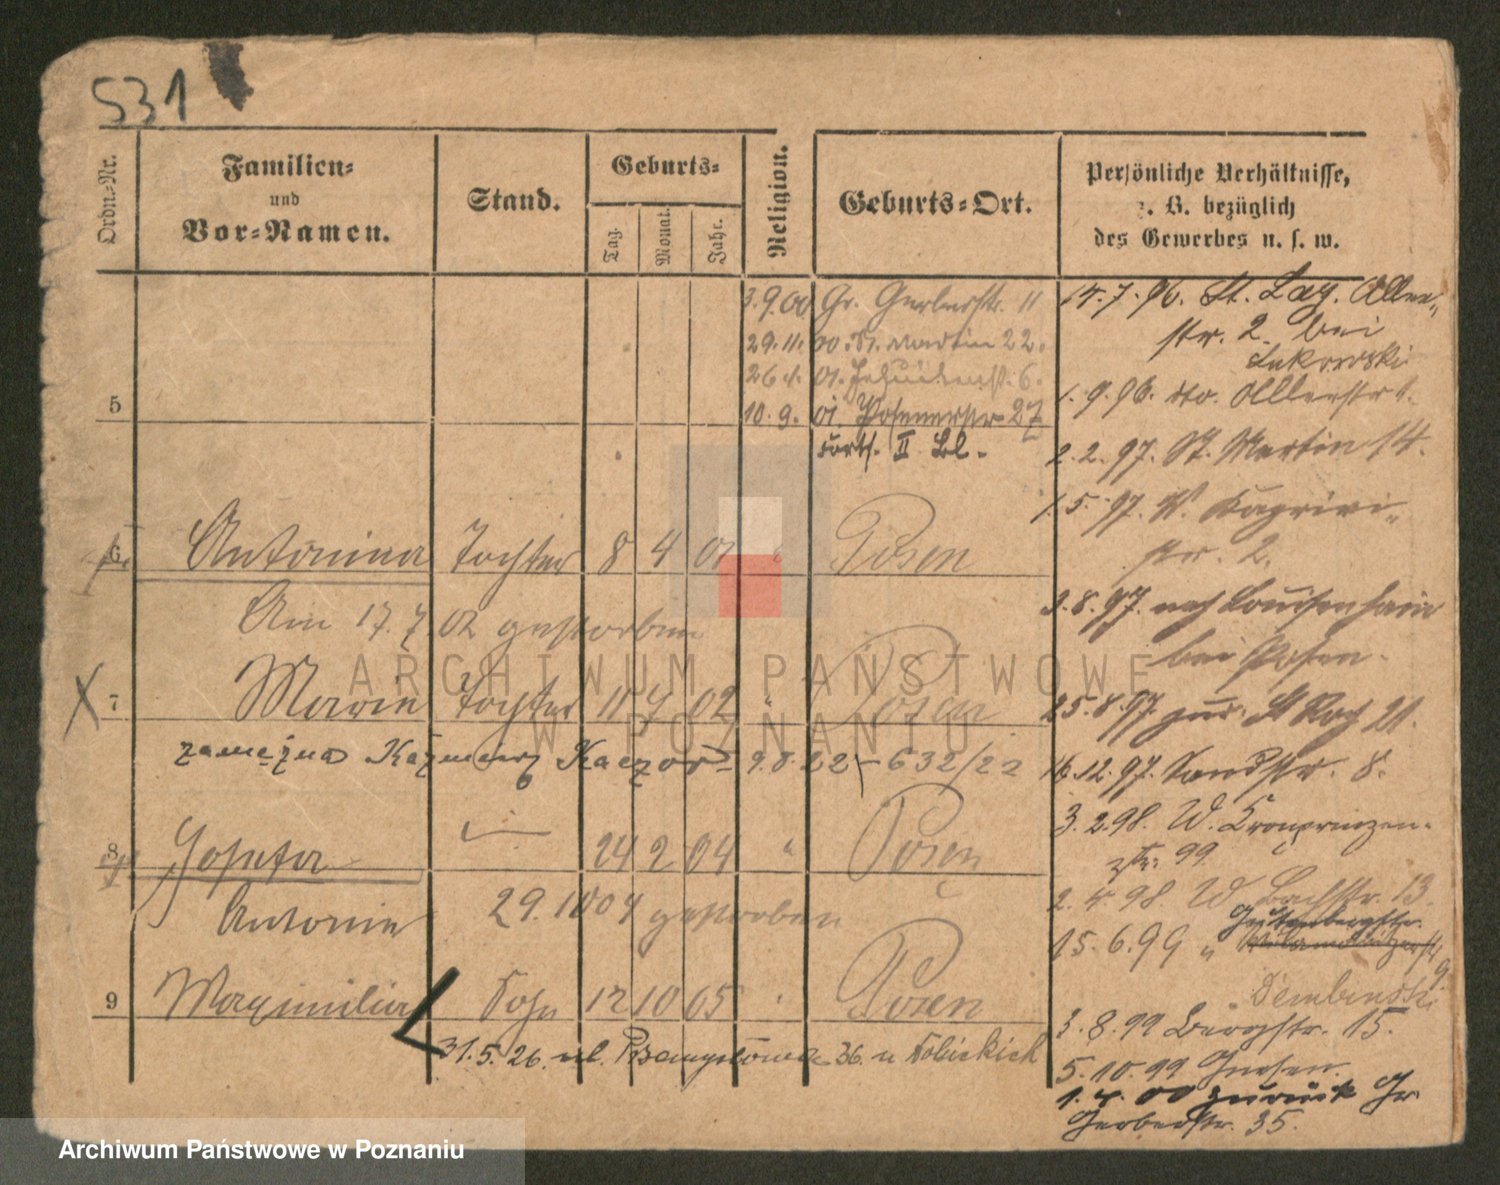 531
Ordn.-Nr.
Familien-
und
Vor-Namen.
Stand.
Geburts-
Tag.
Monat.
Jahr.
Religion.
Geburts-Ort.
Persönliche Verhältnisse,
z. B. bezüglich
des Gewerbes u. s. w.
3.9.00 Gr. Gerberstr. 11
29.11.00 St. Martin 22.
26.1.01. Jesuitenstr. 6.
5 10.9.01. Posenerstr 27
Forts. II Bl.
6 Antonina Tochter 8 4 01 " Posen
Am 17.7.02 gestorben
7 Marie Tochter 11 7 02 " Posen
zamężna Kaźmierz Kaczor 9.8.22 - 632/22
8 Josefa 24 2 04 " Posen
Antonie 29.10 04 gestorben
9 Maximilian Sohn 12 10 05 " Posen
31.5.26. ul. Przemysłowa 36. u Sobieckich
14.7.96. St. Laz. Allee-
str. 2. bei
Lukowski
1.9.96. dto. Alleestr 1.
2.2.97. St. Martin 14.
1.5.97. W. Kaprivi-
str. 2.
3.8.97. nach Louisenhain
bei Posen.
25.8.97. zur. St Roch 21.
16.12.97. Sandstr. 8.
3.2.98. W. Kronprinzen-
str. 99
2.4.98. W. Bachstr. 13.
Gutenbergstr.
15.6.99 "
9
Dembinski
3.8.99 Bergstr. 15.
5.10.99 Gnesen
1.4.00 zurück Gr.
Gerberstr. 35.
ARCHIWUM PAŃSTWOWE
W POZNANIU
Archiwum Państwowe w Poznaniu